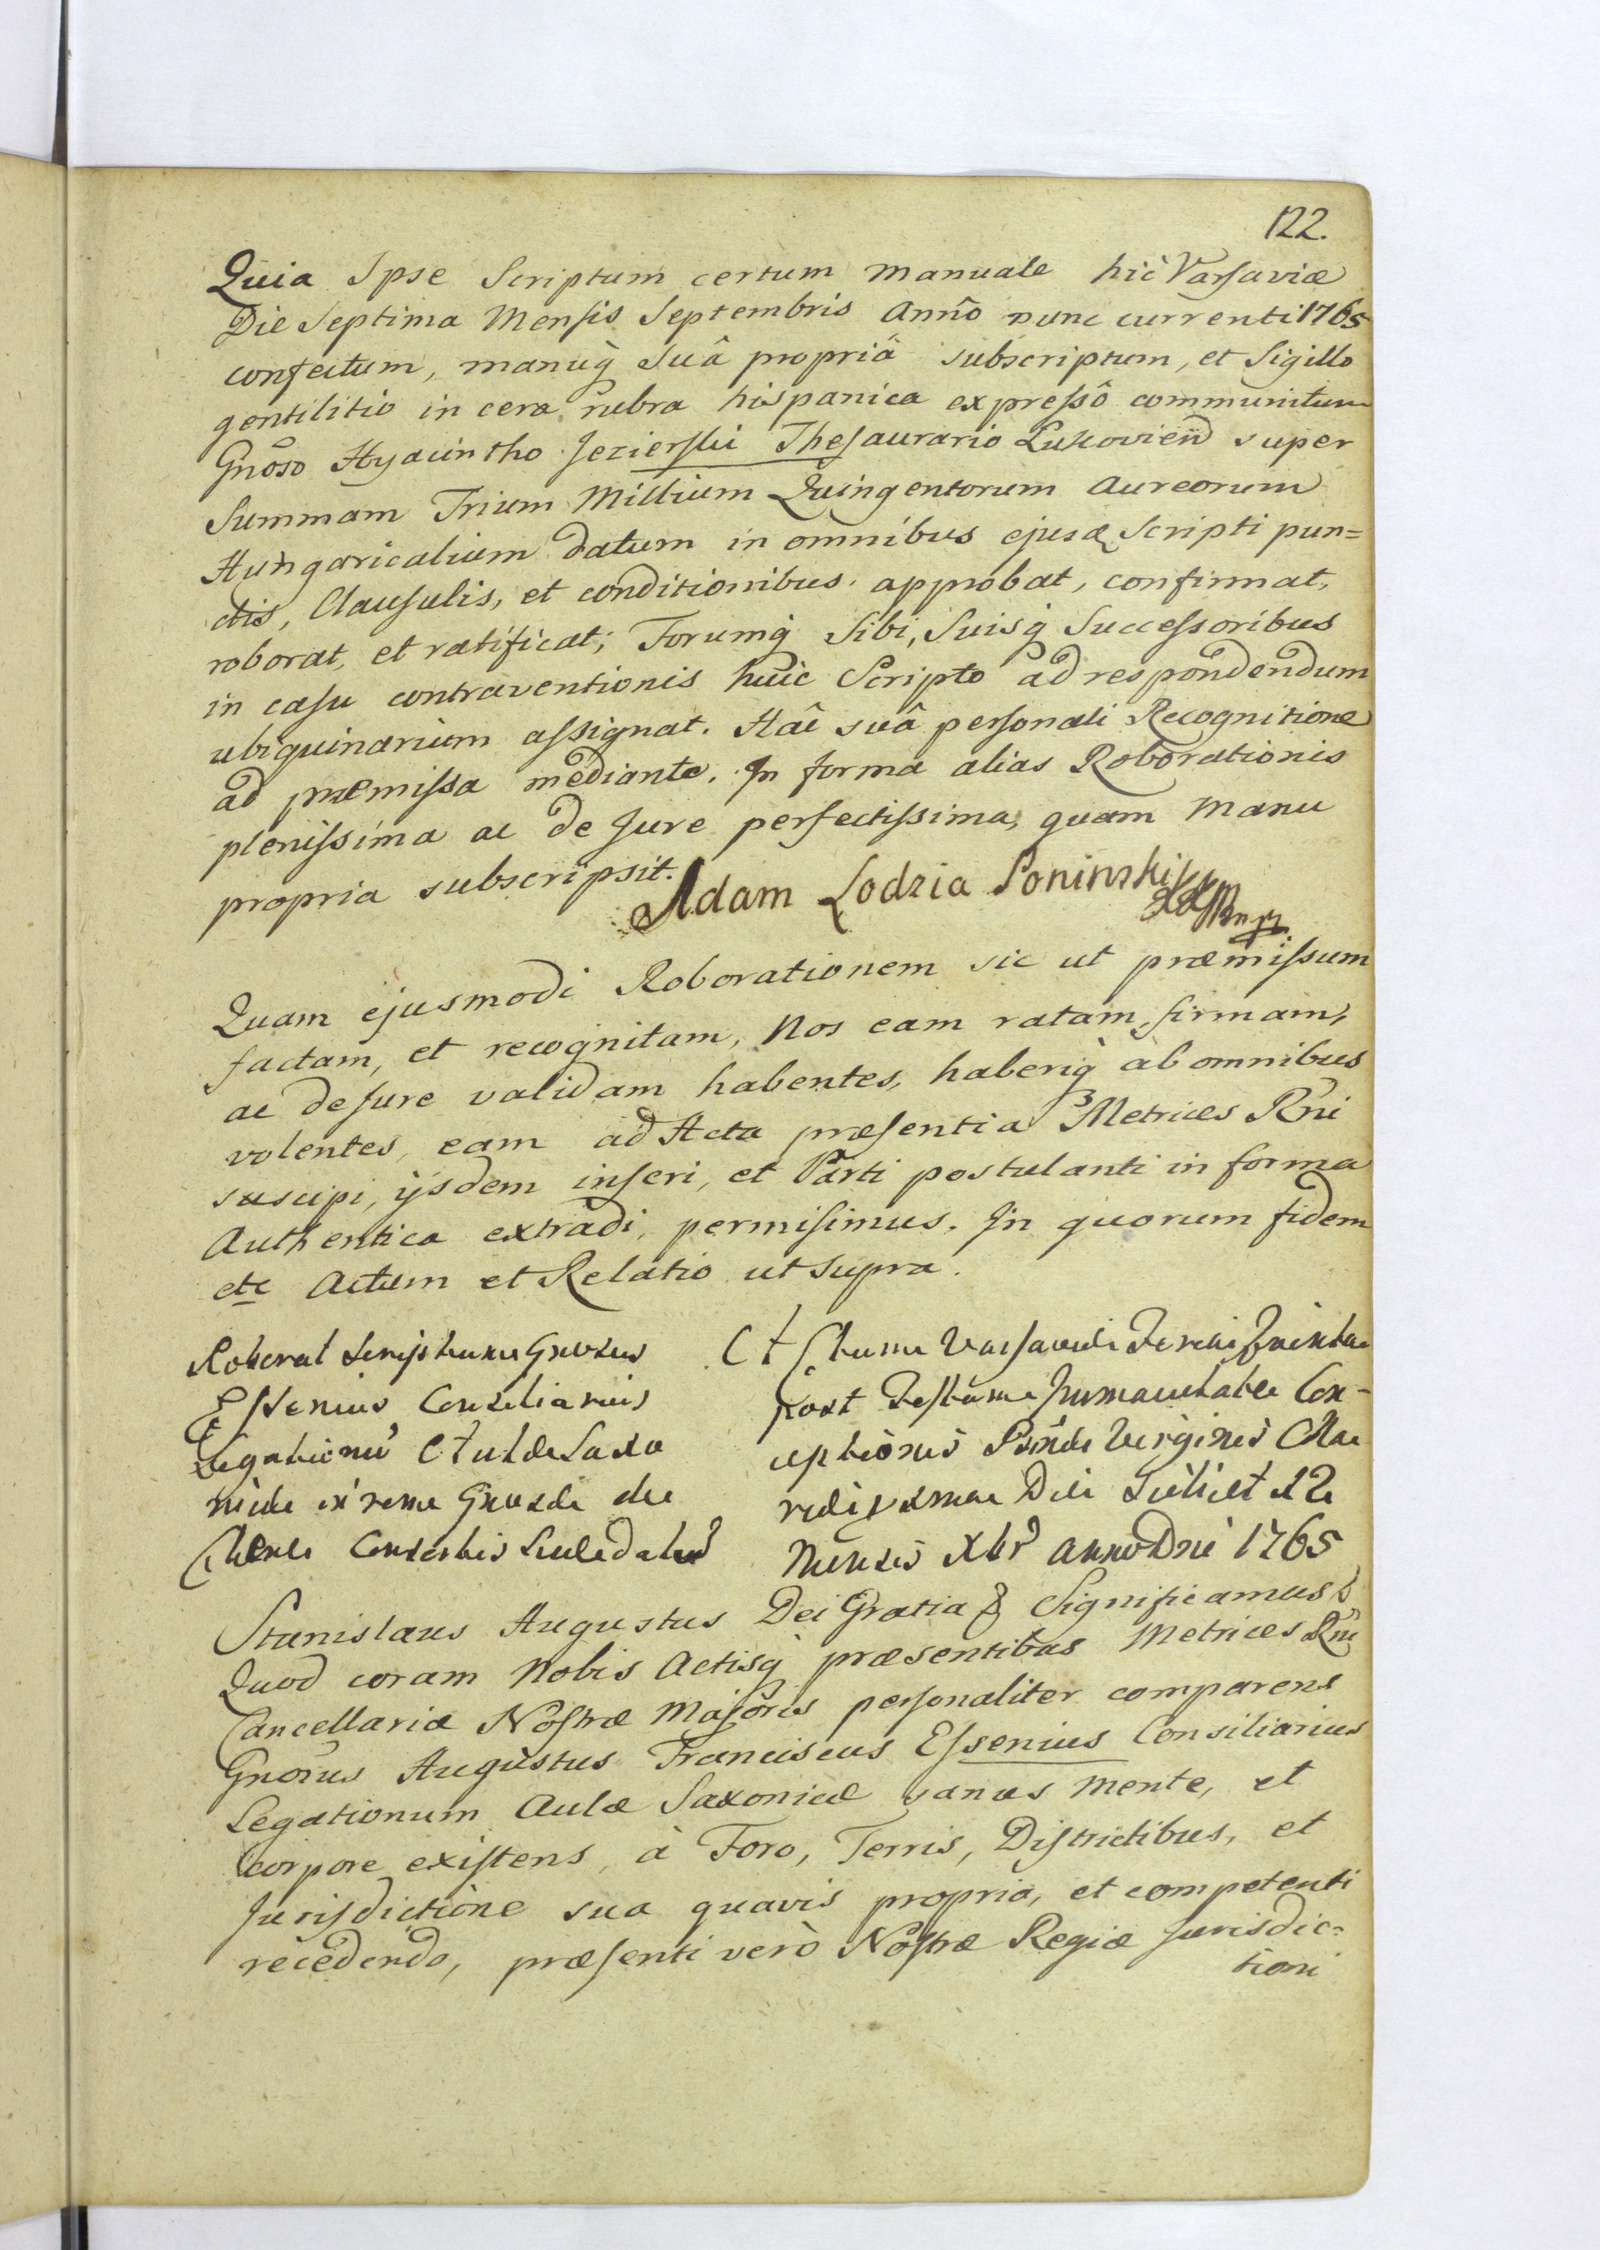 122.
Quia Ipse Scriptum certum manuale hic Varsaviæ
Die Septima Mensis Septembris Anno nunc currenti 1765
confectum, manuq̃ suâ propriâ subscriptum, et Sigillo
gentilitio in cera rubra hispanica expressô communitum
Gnõso Hyacintho Jezierski Thesaurario Lukovien̄ super
Summam Trium Millium Quingentorum Aureorum
Hungaricalium datum in omnibus ejusq̃ Scripti pun=
ctis, Clausulis, et conditionibus approbat, confirmat,
roborat, et ratificat; Forumq̃ Sibi, Suisq̃ Successoribus
in casu contraventionis huic Scripto ad respondendum
ubiquinarium assignat. Hac suâ personali Recognitione
ad præmissa mediante. In forma alias Roborationis
plenissima ac de Jure perfectissima, quam Manu
propria subscripsit.
Adam Lodzia Poninski
Quam ejusmodi Roborationem sic ut præmissum
factam, et recognitam, Nos eam ratam, firmam,
ac de Jure validam habentes, haberiq̃ ab omnibus
volentes, eam ad Acta præsentia Metrices Rñi
suscipi, ijsdem inseri, et Parti postulanti in forma
Authentica extradi, permisimus. In quorum fidem
etc Actum et Relatio ut supra.
Roborat Scriptum Gnosus
Essenius Consiliarius
Legationũ Aulæ Saxo
nicæ
Actum Varsaviæ Feria Quinta
post Festum Immaculatæ Con-
ceptionis Bm̃æ Virginis Ma
riæ Die Scilicet 12
Mensis Xbr̃ Anno Dñi 1765
Stanislaus Augustus Dei Gratia & Significamus &
Quod coram Nobis Actisq̃ præsentibus Metrices Rñi
Cancellariæ Nostræ Majoris personaliter comparens
Gnõsus Augustus Franciscus Essenius Consiliarius
Legationum Aulæ Saxonicæ sanus mente, et
corpore existens, à Foro, Terris, Districtibus, et
Jurisdictione sua quavis propria, et competenti
recedendo, præsenti verò Nostræ Regiæ Jurisdic=
tioni